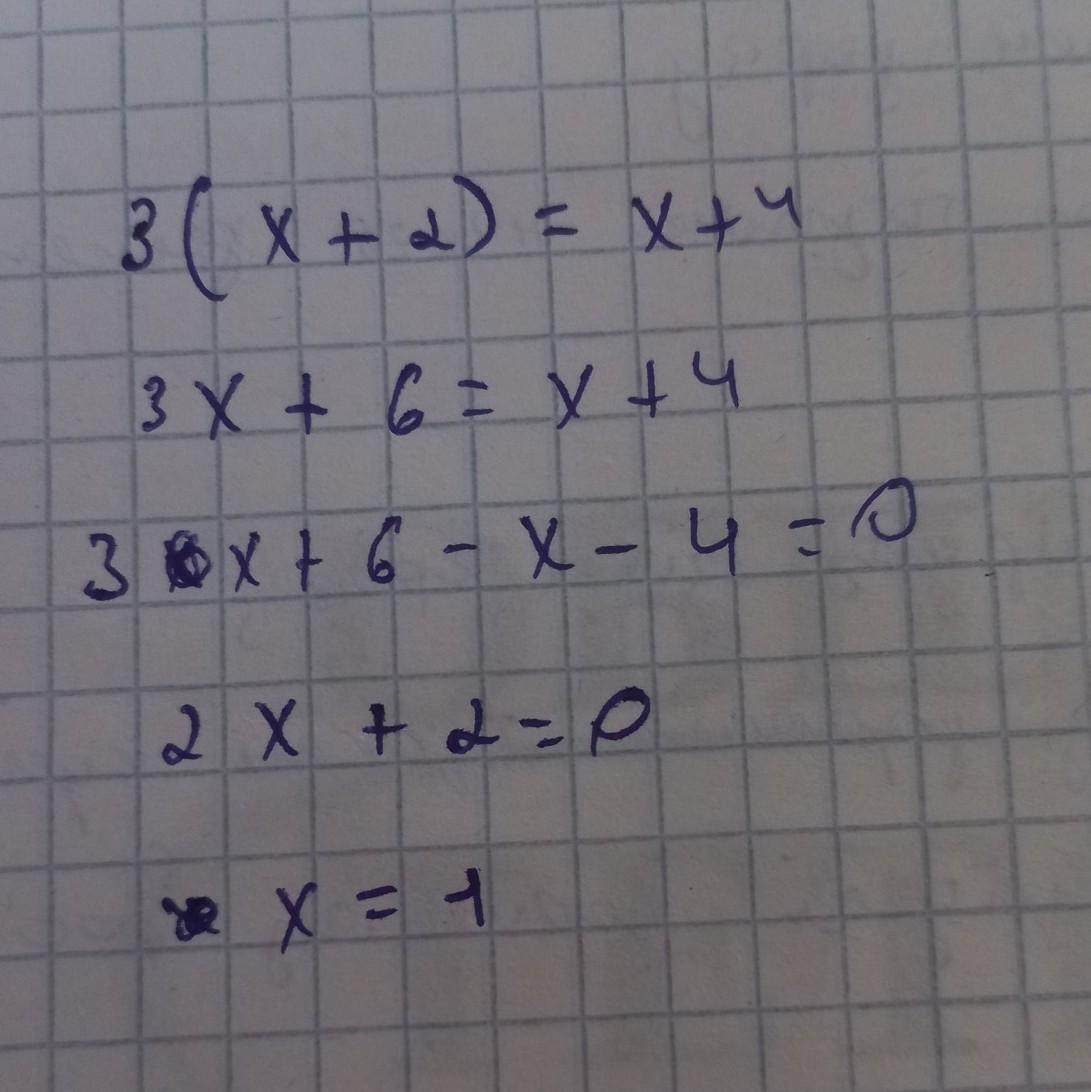 3(x+2)=x+4
3x+6=x+4
3x+6-x-4=0
2x+2=0
x=-1